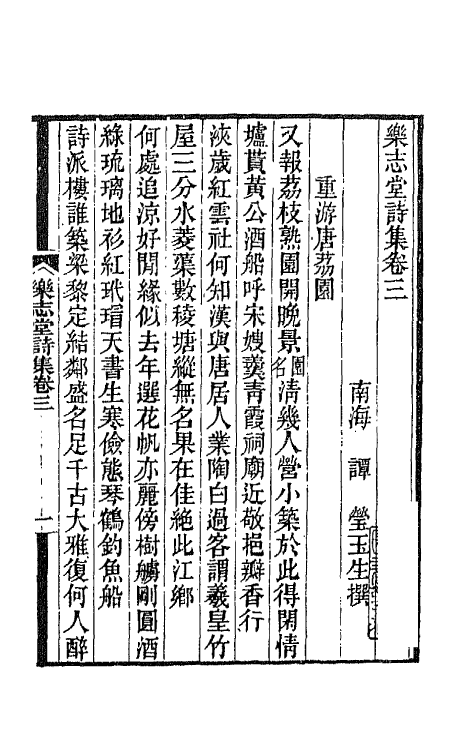 樂志堂詩集卷三
南海 譚 瑩玉生撰
重游唐荔園
又報荔枝熟園開晚景園名清幾人營小築於此得閑情
壚貰黃公酒船呼宋嫂羹青霞祠廟近敬挹瓣香行
浹歲紅雲社何知漢與唐居人業陶白過客謂羲皇竹
屋三分水菱渠數稜塘縱無名果在佳絶此江鄉
何處追涼好閒緣似去年選花帆亦麗傍樹艣剛圓酒
綠琉璃地衫紅玳瑁天書生寒儉態琴鶴釣魚船
詩派樓誰築梁黎定結鄰盛名足千古大雅復何人醉
樂志堂詩集卷三
一